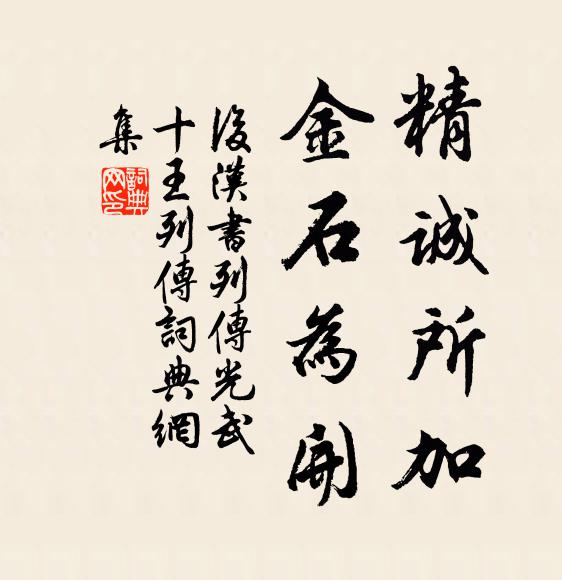 精誠所加
金石為開
後漢書列傳光武
十王列傳詞典網
集
詞典
网印